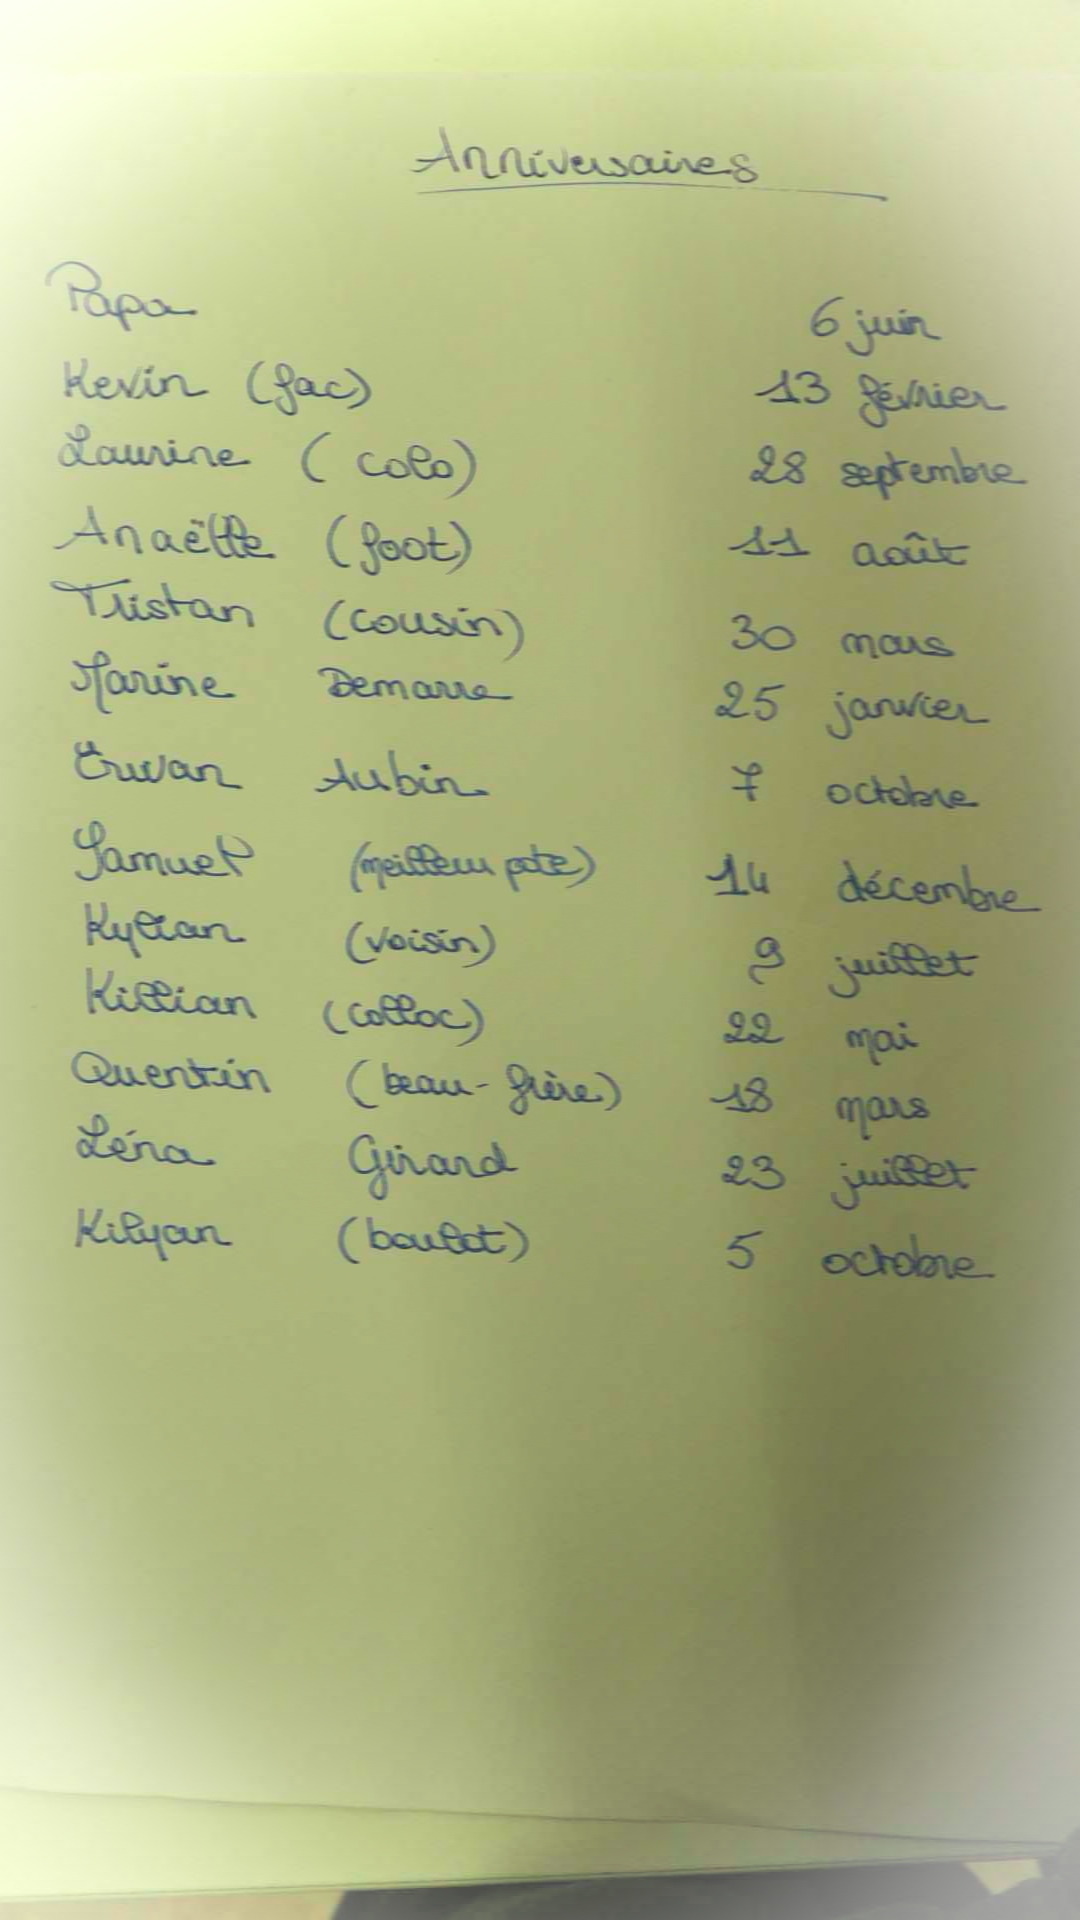 Anniversaires
Papa 6 juin
Kevin (fac) 13 février
Laurine (colo) 28 septembre
Anaëlle (foot) 11 août
Tristan (cousin) 30 mars
Marine Demarre 25 janvier
Erwan Aubin 7 octobre
Samuel (meilleur pote) 14 décembre
Kylian (voisin) 9 juillet
Killian (colloc) 22 mai
Quentin (beau-frère) 18 mars
Léna Girard 23 juillet
Kilyan (boulot) 5 octobre